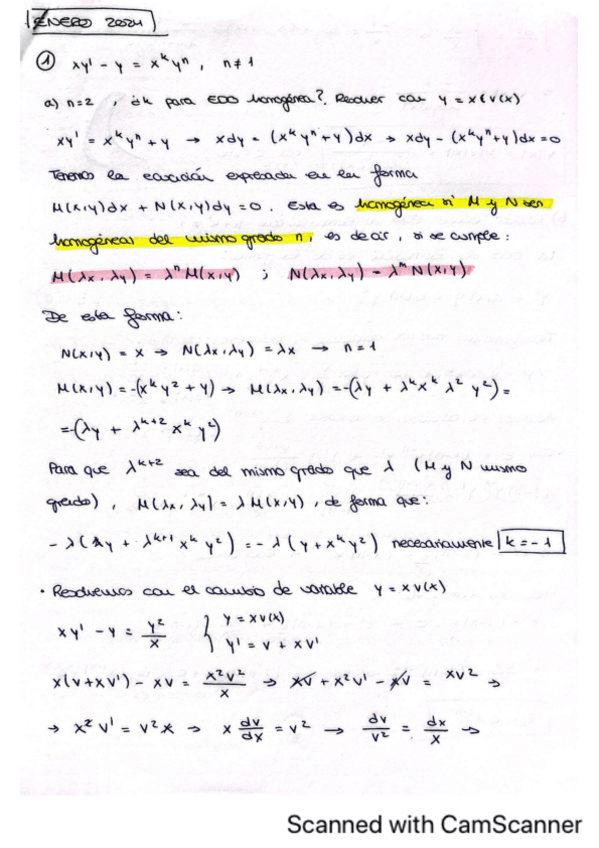 ENERO 2024
① xy' - y = x^k y^n, n≠1
a) n=2, ¿k para EDO homogénea? Resolver con y = x·v(x)
xy' = x^k y^n + y → xdy = (x^k y^n + y)dx → xdy - (x^k y^n + y)dx = 0
Tenemos la ecuación expresada en la forma
M(x,y)dx + N(x,y)dy = 0. Esta es homogénea si M y N son
homogéneas del mismo grado n, es decir, si se cumple:
M(λx, λy) = λ^n M(x,y) ; N(λx, λy) = λ^n N(x,y)
De esta forma:
N(x,y) = x → N(λx, λy) = λx → n = 1
M(x,y) = -(x^k y² + y) → M(λx, λy) = -(λy + λ^k x^k λ² y²) =
= -(λy + λ^{k+2} x^k y²)
Para que λ^{k+2} sea del mismo grado que λ (M y N mismo
grado), M(λx, λy) = λ M(x,y), de forma que:
- λ(λy + λ^{k+1} x^k y²) = - λ(y + x^k y²) necesariamente k = -1
· Resolvemos con el cambio de variable y = x v(x)
xy' - y = y²/x { y = x v(x)
y' = v + xv'
x(v + xv') - xv = x²v²/x → xv + x²v' - xv = xv² →
→ x² v' = v² x → x dv/dx = v² → dv/v² = dx/x →
Scanned with CamScanner